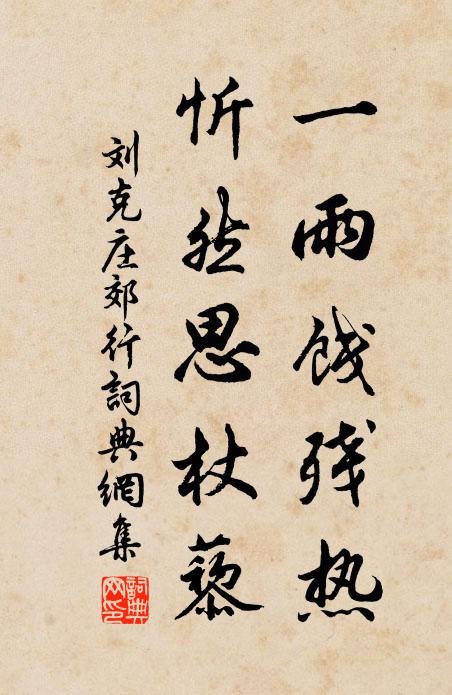 一雨饯残热
忻然思杖藜
刘克庄郊行詞典網集
詞典网印